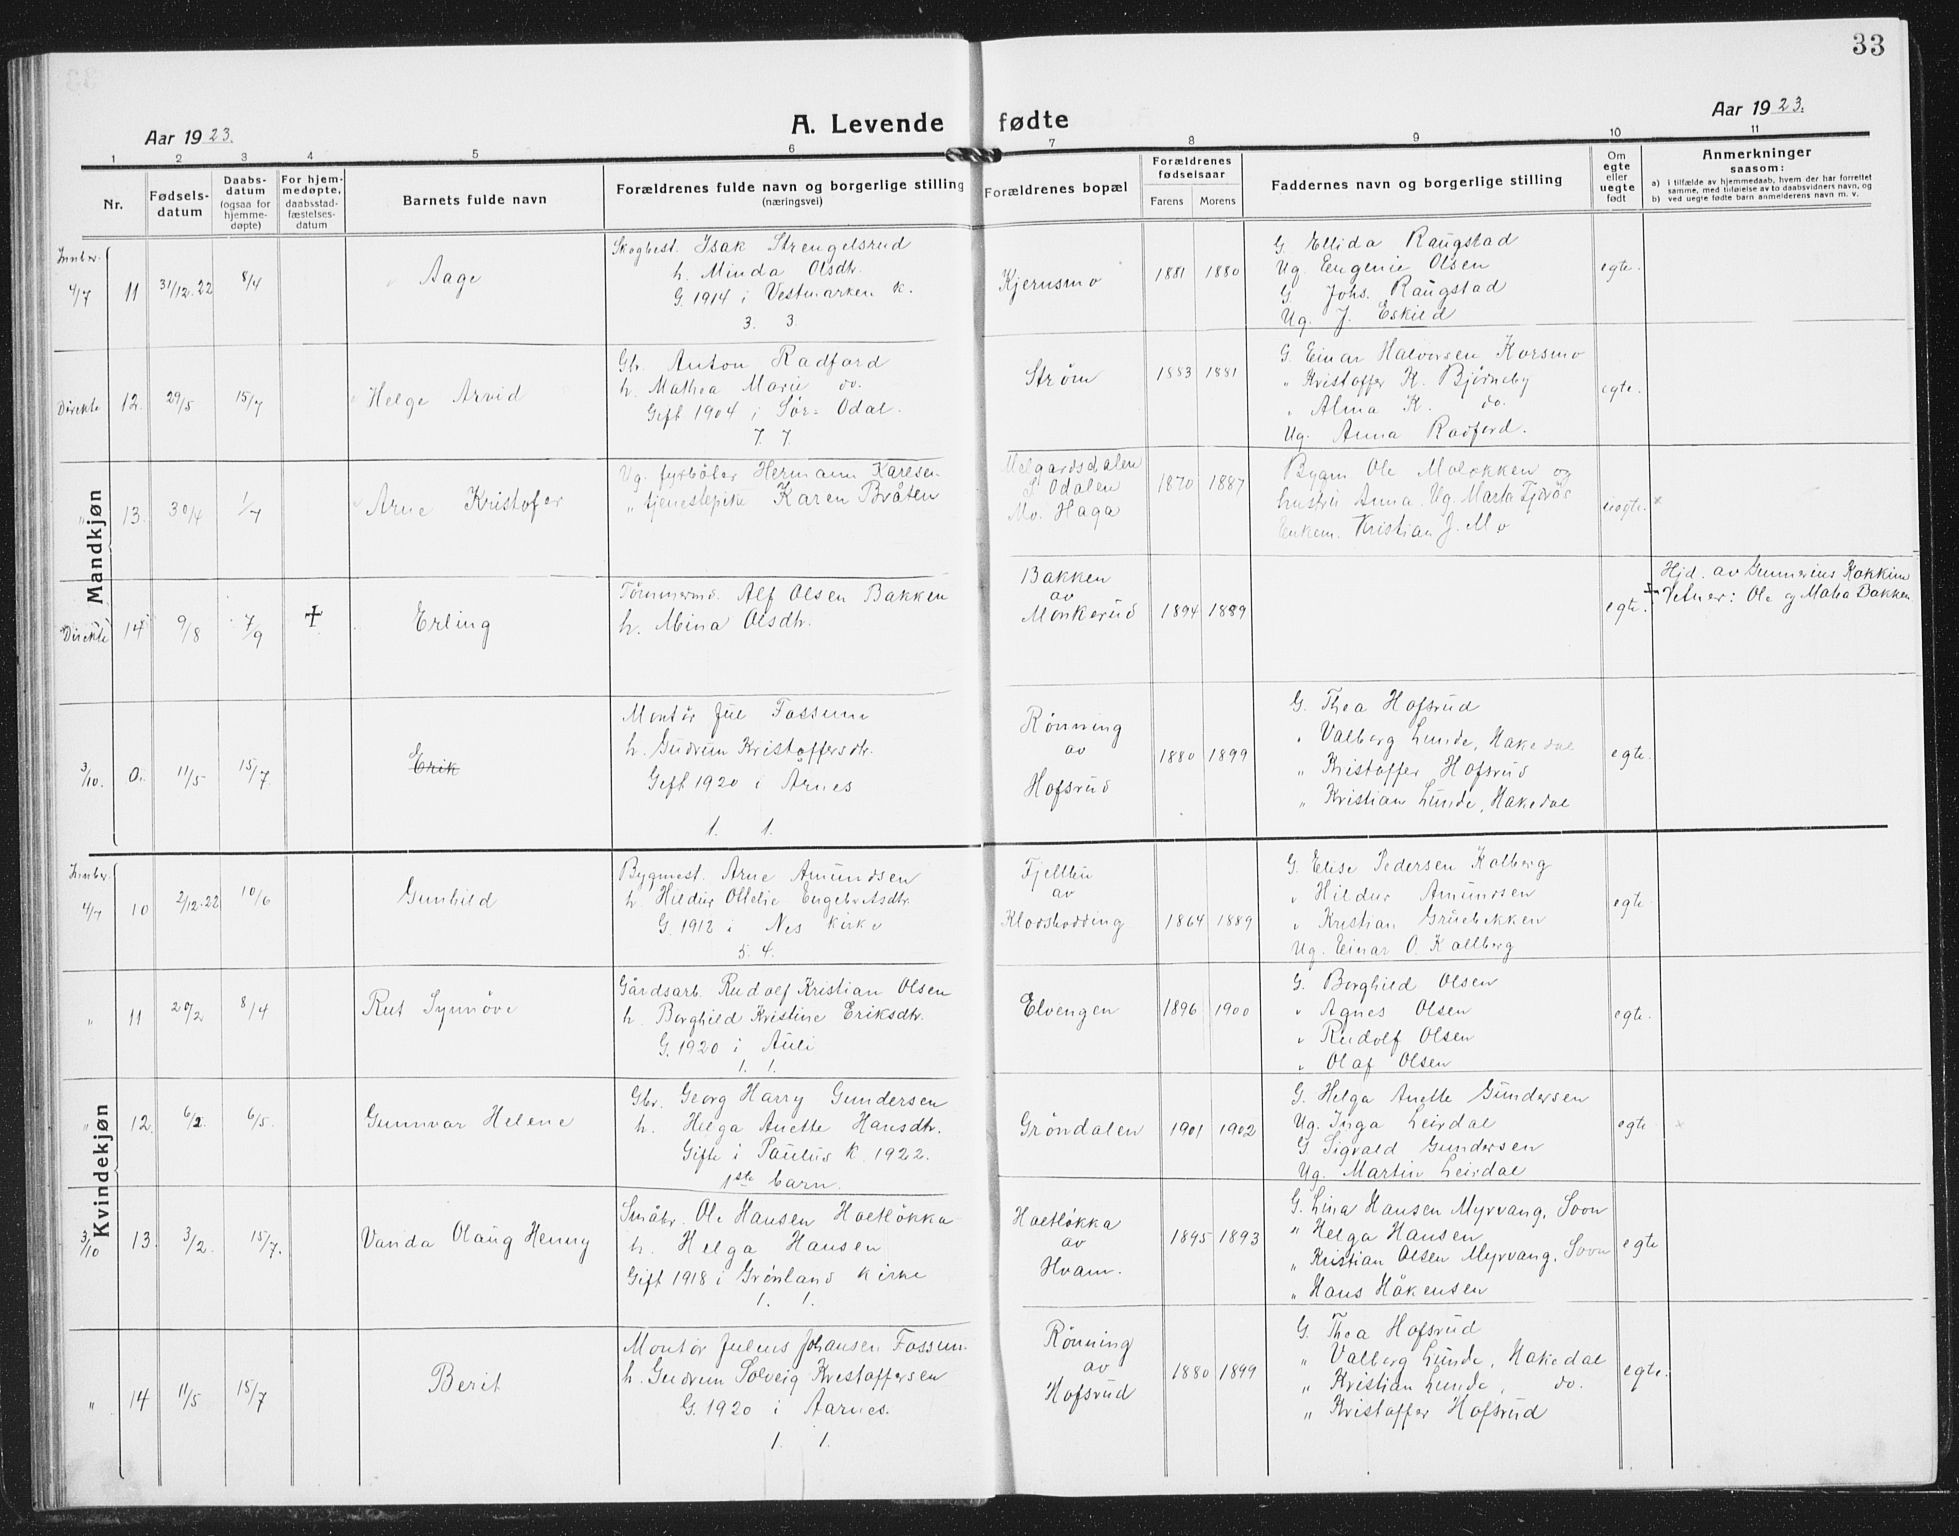 33
Aar 1923.
A. Levende fødte
Aar 1923.
1 2 3 4 5 6 7 8 9 10 11
Nr.
Fødsels-
datum
Daabs-
datum
(ogsaa for
hjemme-
døpte)
For hjem-
medøpte,
daabsstad-
fæstelses-
datum
Barnets fulde navn
Forældrenes fulde navn og borgerlige stilling
(næringsvei)
Forældrenes bopæl
Forældrenes
fødselsaar
Farens Morens
Faddernes navn og borgerlige stilling
Om
egte
eller
uegte
født
Anmerkninger
saasom:
a) i tilfælde av hjemmedaab, hvem der har forrettet
samme, med tilføielse av to daabsvidners navn, og
b) ved uegte fødte barn anmelderens navn m. v.
Mandkjøn
Innber.
4/7 11 31/12.22 8/4 Aage
Skogbest. Isak Strengelsrud
h. Minda Olsdtr.
G. 1914 i Vestmarken k.
3. 3.
Kjerusmo 1881 1880
G. Ellida Raugstad
Ug. Eugenie Olsen
G. Johs. Raugstad
Ug. J. Eskild
egte.
Direkte 12. 29/5 15/7 Helge Arvid
Gbr. Anton Radford
h. Mathea Marie do.
Gift 1904 i Sør-Odal.
7. 7.
Strøm 1883 1881
G. Einar Halvorsen Korsmo
" Kristoffer K. Bjørneby
" Alma K. do.
Ug. Anna Radford.
egte.
" 13. 30/4 1/7 Arne Kristofer
Ug. fyrbøter Hermann Karlsen
" tjenestepike Karen Bråten
Melgardsdalen
S. Odalen
Mv. Haga
1870 1887
Bygm Ole Moløkken og
hustru Anna. Ug. Marta Fjøss
Enkem. Kristian J. Mo
uegte. ×
Direkte 14 9/8 7/9 + Erling
Tømmerm. Alf Olsen Bakken
h. Mina Olsdtr.
Bakken
av
Monkerud
1894 1889
egte.
+ Hjd. av Gunnerius Kokkim
Vitner: Ole og Matea Bakken
3/10. 0. 11/5 15/7. Erik
Montør Jul Fossum
h. Gudrun Kristoffersdtr.
Gift 1920 i Årnes
1. 1.
Rønning
av
Hofsrud
1880 1899
G. Thea Hofsrud
" Valborg Lunde, Hakedal
" Kristoffer Hofsrud
" Kristian Lunde, Hakedal
egte.
Kvindekjøn
Innber.
4/7 10 2/12.22 10/6 Gunhild
Bygmest. Arne Amundsen
h. Hildur Ottelie Engebretsdtr.
G. 1912 i Nes kirke
5. 4.
Fjellbu
av
Klodshodding
1864 1889
G. Elise Pedersen Kalberg
" Hildur Amundsen
" Kristian Gruebekken
Ug. Einar O. Kallberg
egte.
" 11 20/2 8/4 Rut Synnøve
Gårdsarb. Rudolf Kristian Olsen
h. Borghild Kristine Eriksdtr.
G. 1920 i Auli
1. 1.
Elvengen 1896 1900
G. Borghild Olsen
" Agnes Olsen
" Rudolf Olsen
" Olaf Olsen
egte.
" 12. 6/2 6/5. Gunnvor Helene
Gbr. Georg Harry Gundersen
h. Helga Anette Hansdtr.
Gifte i Paulus K. 1922.
1ste barn.
Grøndalen 1901 1902
G. Helga Anette Gundersen
Ug. Inga Leirdal
G Sigvald Gundersen
Ug. Martin Leirdal
egte ×
3/10 13. 3/2. 15/7. Vanda Olaug Henny
Småbr. Ole Hansen Hoetløkka
h. Helga Hansen
Gift 1918 i Grønland kirke
1. 1.
Hoetløkka
av
Hvam.
1895 1893
G. Lina Hansen Myrvang, Soon
" Helga Hansen
" Kristian Olsen Myrvang, Soon
" Hans Håkensen
egte
" 14 11/5 15/7 Berit
Montør Julius Johansen Fossum
h. Gudrun Solveig Kristoffersen
G. 1920 i Aarnes.
1. 1.
Rønning
av
Hofsrud
1880 1899
G. Thea Hofsrud
" Valborg Lunde, Hakedal
" Kristian Lunde, do.
" Kristoffer Hofsrud
egte.